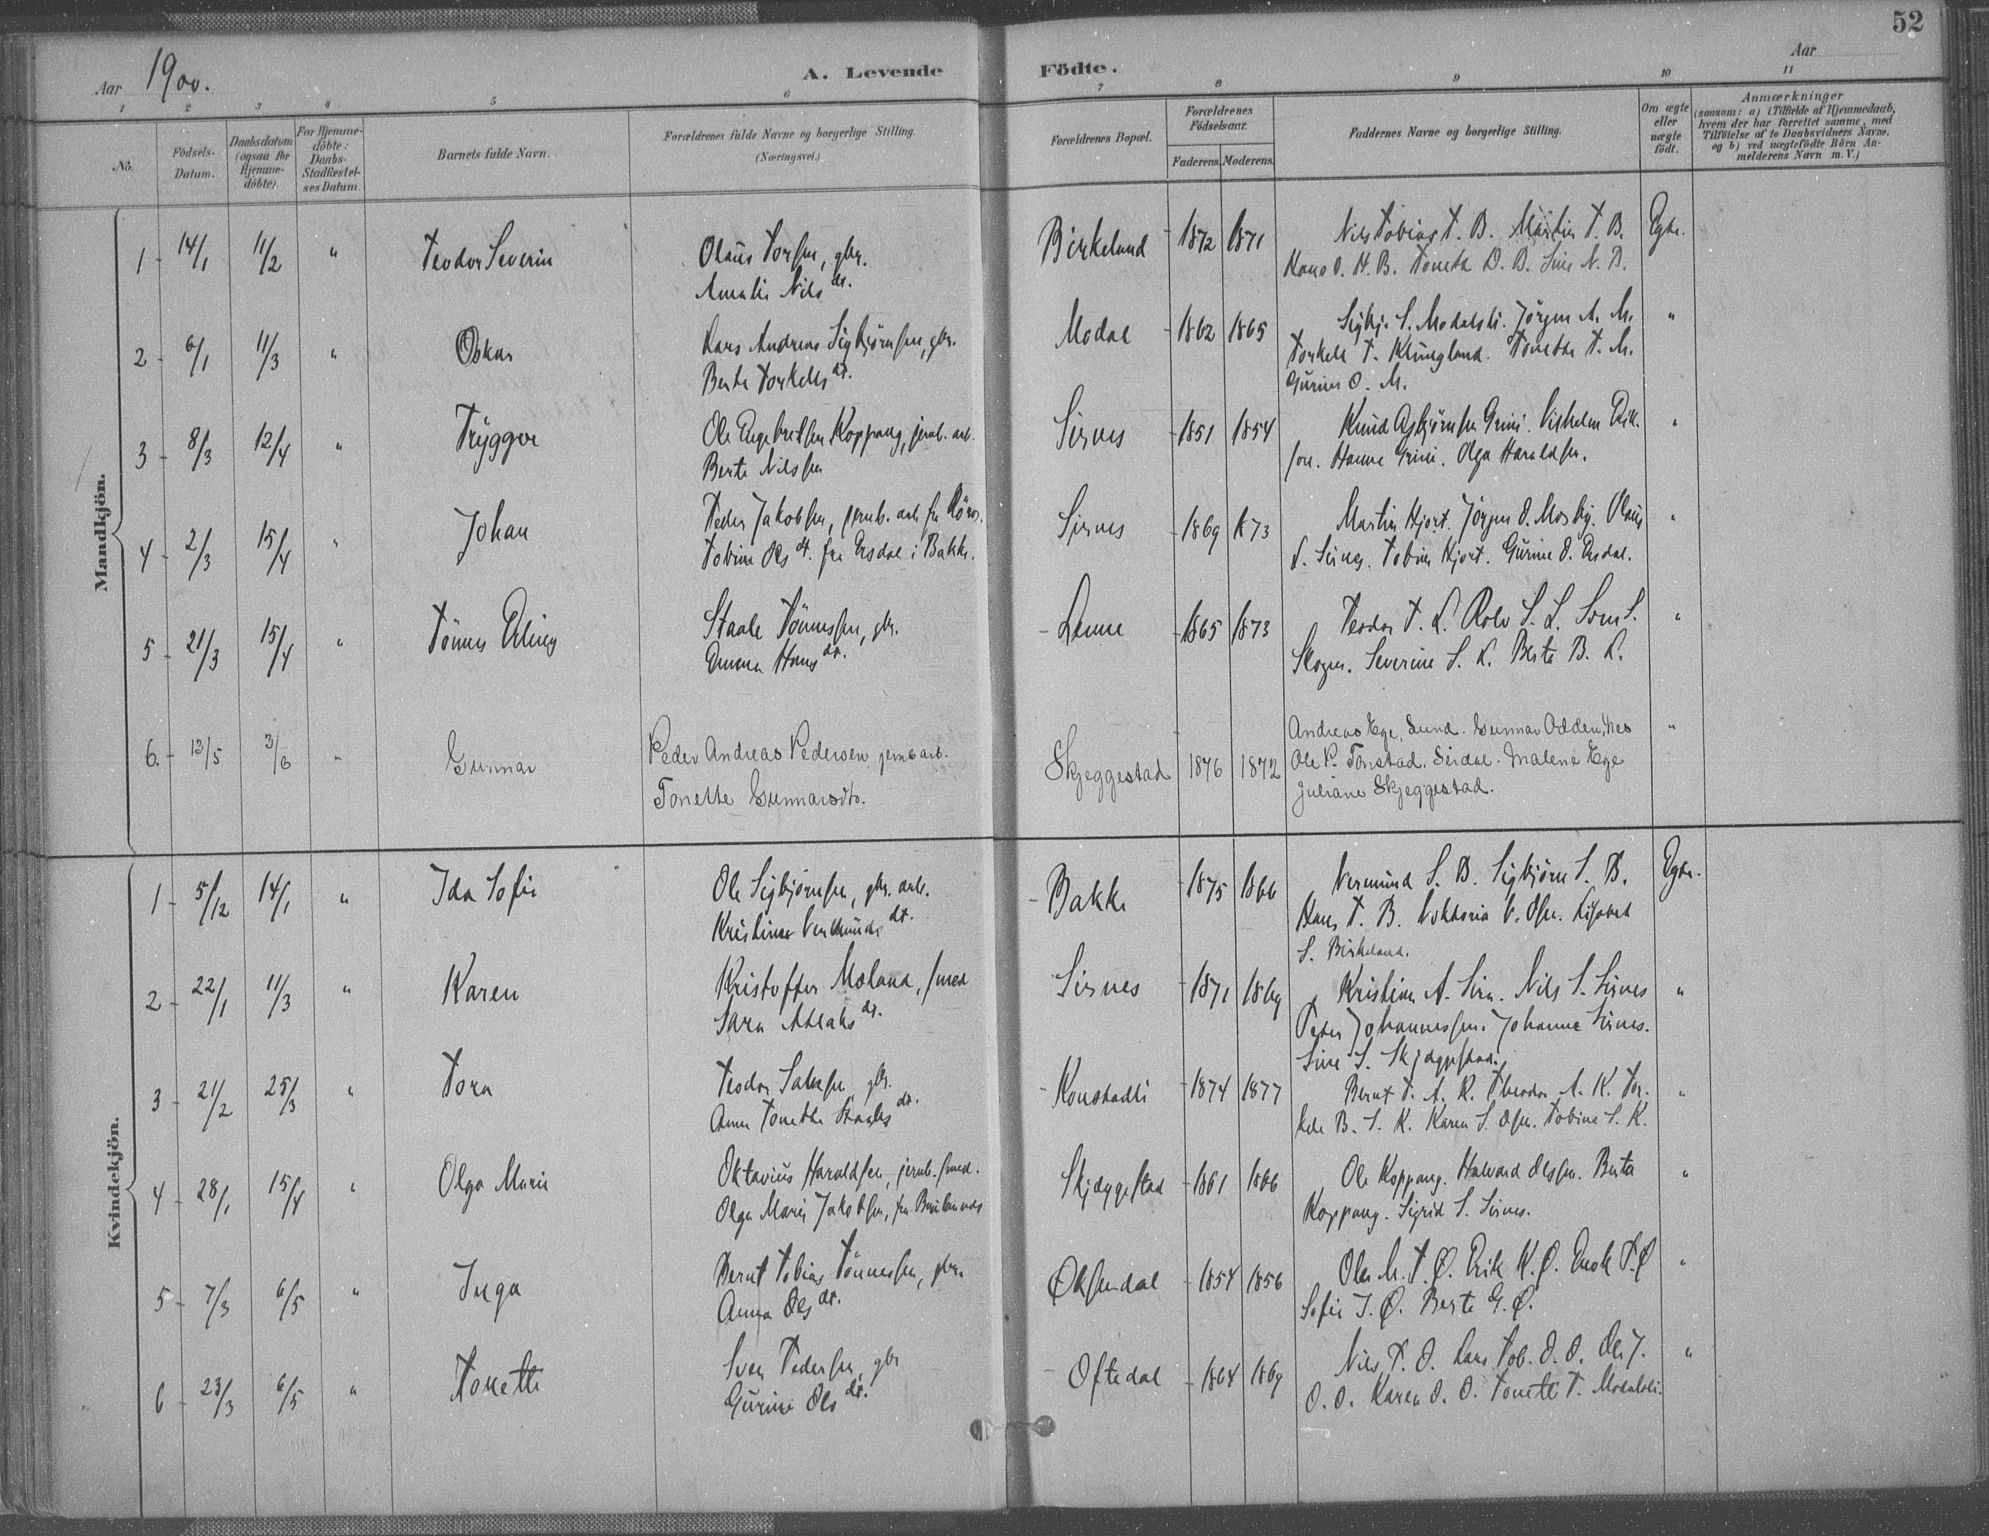 52
Aar 1900. A. Levende Födte. Aar
1 2 3 4 5 6 7 8 9 10 11
No. Födsels-Datum. Daabsdatum (ogsaa for Hjemme-döbte). For Hjemme-döbte: Daabs-Stadfæstel-ses Datum. Barnets fulde Navn. Forældrenes fulde Navne og borgerlige Stilling. (Næringsvei.) Forældrenes Bopæl. Forældrenes Födselsaar. Faderens. Moderens. Faddernes Navne og borgerlige Stilling. Om ægte eller uægte födt. Anmærkninger (saasom: a) i Tilfælde af Hjemmedaab, hvem der har forrettet samme, med Tilföielse af to Daabsvidners Navne, og b) ved uægtefödte Börn An-melderens Navn m. V.)
Mandkjön.
1 14/1 11/2 " Teodor Severin Olaus Torsen, gbr. Birkeland 1872 1871 Nils Tobias T. B. Martin T. B. Egte.
Amalie Nilsdt. Hans O. H. B. Tonette O. B. Sine N. B.
2 6/1 11/3 " Oskar Lars Andreas Sigbjørnsen, gbr. Modal 1862 1865 Sigbj. S. Modalsli. Jörgen A. M. "
Berte Torkelsdt. Torkel T. Klungland. Tonette T. M.
Gurine O. M.
3 8/3 12/4 " Trygve Ole Engebretsen Koppang, jernb. arb. Sirnes 1851 1854 Knud Asbjørnsen Grini. Vilhelm Erik- "
Berte Nilssen sen. Hanne Grini. Olga Haraldsen.
4 2/3 15/4 " Johan Peder Jakobsen, jernb. arb. fra Röros. Sirnes 1869 1873 Martin Hjort. Jörgen O. Mosby. Olaus "
Tobine Olsdt. fra Ersdal i Bakke. S. Sirnes. Tobine Hjort. Gurine O. Ersdal.
5 21/3 15/4 " Tönnes Erling Staale Tönnessen, gbr. Lunne 1865 1873 Teodor T. L. Rolv S. L. Sven S. "
Emma Hansdt. Skogen. Severine S. L. Berte B. L.
6. 13/5 3/6 " Gunnar Peder Andreas Pedersen jernb arb. Skjeggestad 1876 1872 Andreas Ege, Lund. Gunnar Odden, Nes "
Tonette Gunnarsdtr. Ole P. Tonstad, Sirdal. Malene Ege
Juliane Skjeggestad.
Kvindekjön.
1 5/12 14/1 " Ida Sofie Ole Sigbjørnsen, gbr. arb. Bakke 1875 1866 Vermund S. B. Sigbjörn S. B. Egte.
Kristine Vermundsdt. Hans T. B. Viktoria V. Olsen. Lisabet
S. Birkeland.
2 22/1 11/3 " Karen Kristoffer Moland, smed Sirnes 1871 1869 Kristine A. Sirn. Nils S. Sirnes "
Sara Atlaksdt. Peter Johannessen. Johanne Sirnes.
Sine S. Skjæggestad.
3 21/2 25/3 " Tora Teodor Salvesen, gbr. Konstadli 1874 1877 Bernt T. A. K. Theodor A. K. Tor- "
Anne Tonette Staalesdt. kel B. S. K. Karen S. Olsen. Tobine S. K.
4 28/1 15/4 " Olga Marie Oktavius Haraldsen, jernb. smed. Skjæggestad 1861 1866 Ole Koppang. Halvard Olssen. Berte "
Olga Marie Jakobsen, fra Koppang. Sigrid S. Sirnes.
5 7/3 6/5 " Inga Bernt Tobias Tönnessen, gbr. Øksendal 1854 1856 Ole M. T. Ø. Erik K. Ø. Enok T. Ø "
Anna Olsdt. Sofie J. Ø. Berte G. Ø.
6 23/3 6/5 " Tonette Sven Pedersen, gbr Oftedal 1864 1869 Nils P. O. Lars Tob. O. O. Ole J. "
Gurine Olsdt. O. O. Karen O. O. Tonette T. Modalsli.